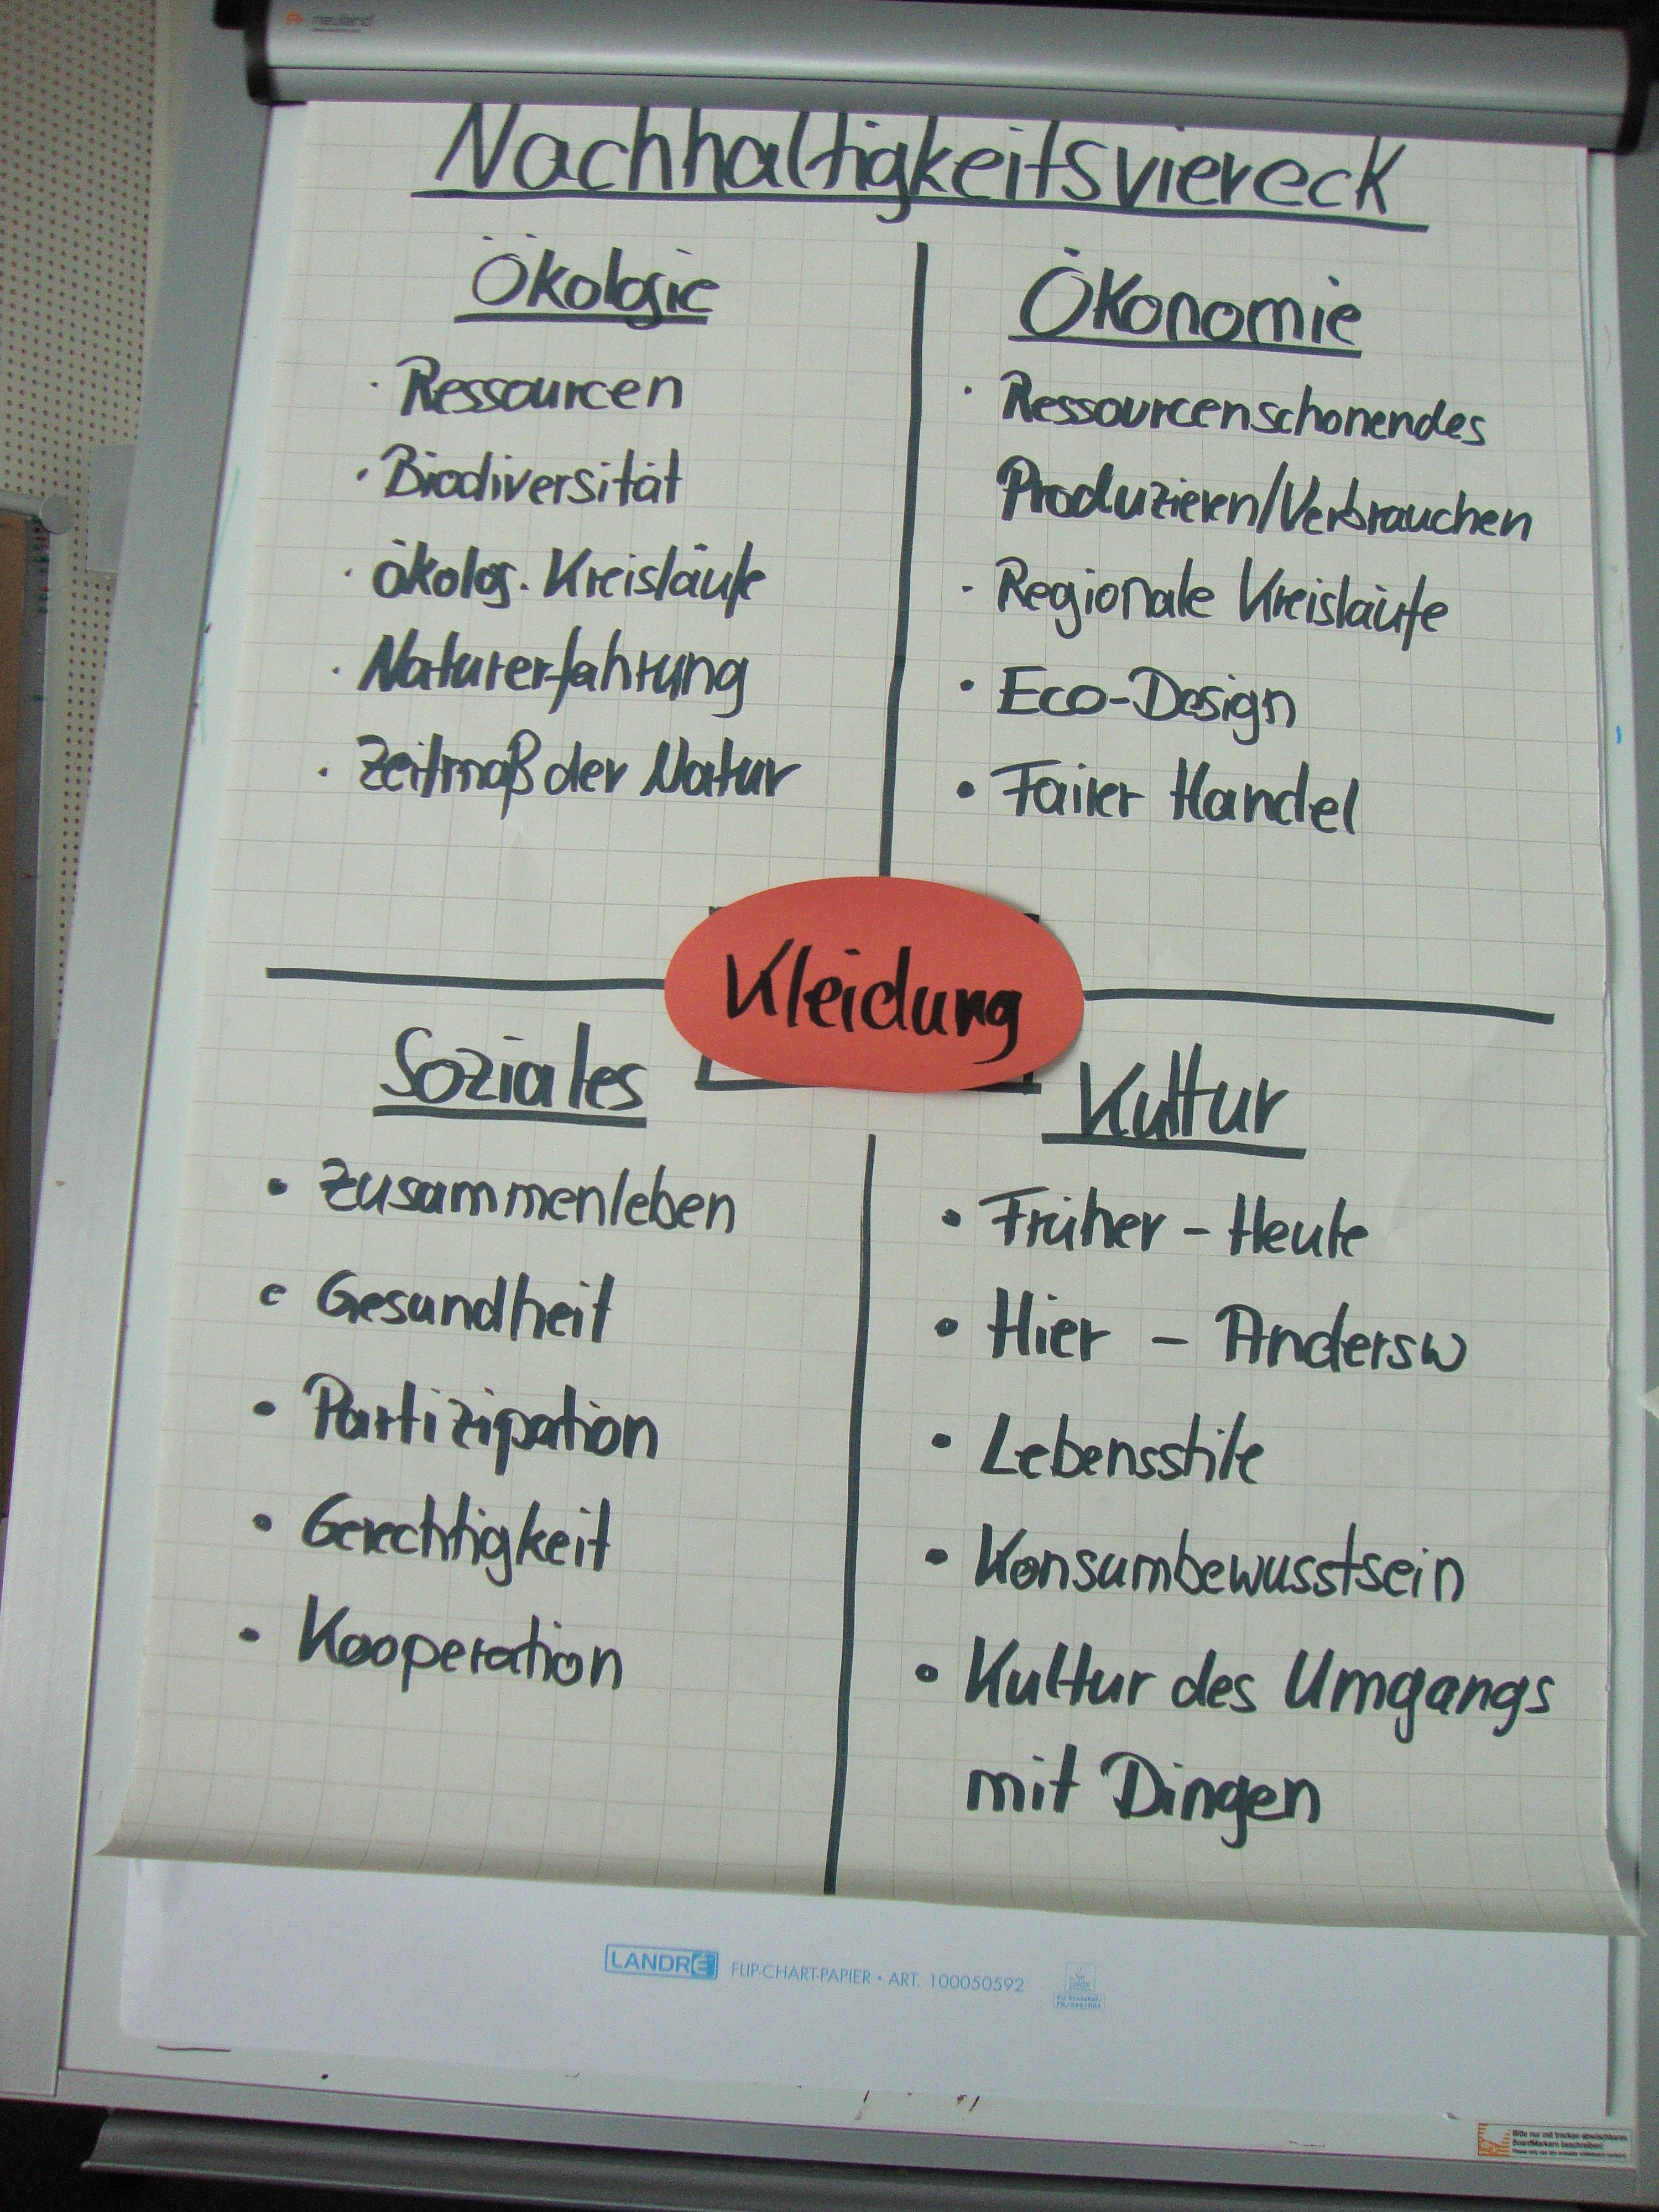 neuland
Nachhaltigkeitsviereck
Ökologie
· Ressourcen
· Biodiversität
· ökolog. Kreisläufe
· Naturerfahrung
· Zeitmaß der Natur
Ökonomie
· Ressourcenschonendes
Produzieren/Verbrauchen
- Regionale Kreisläufe
• Eco-Design
• Fairer Handel
Kleidung
Soziales
• Zusammenleben
• Gesundheit
• Partizipation
• Gerechtigkeit
• Kooperation
Kultur
• Früher - Heute
• Hier - Andersw
• Lebensstile
• Konsumbewusstsein
• Kultur des Umgangs
mit Dingen
LANDRÉ FLIP-CHART-PAPIER • ART. 100050592
Bitte nur mit trocken abwischbaren
BoardMarkern beschreiben!